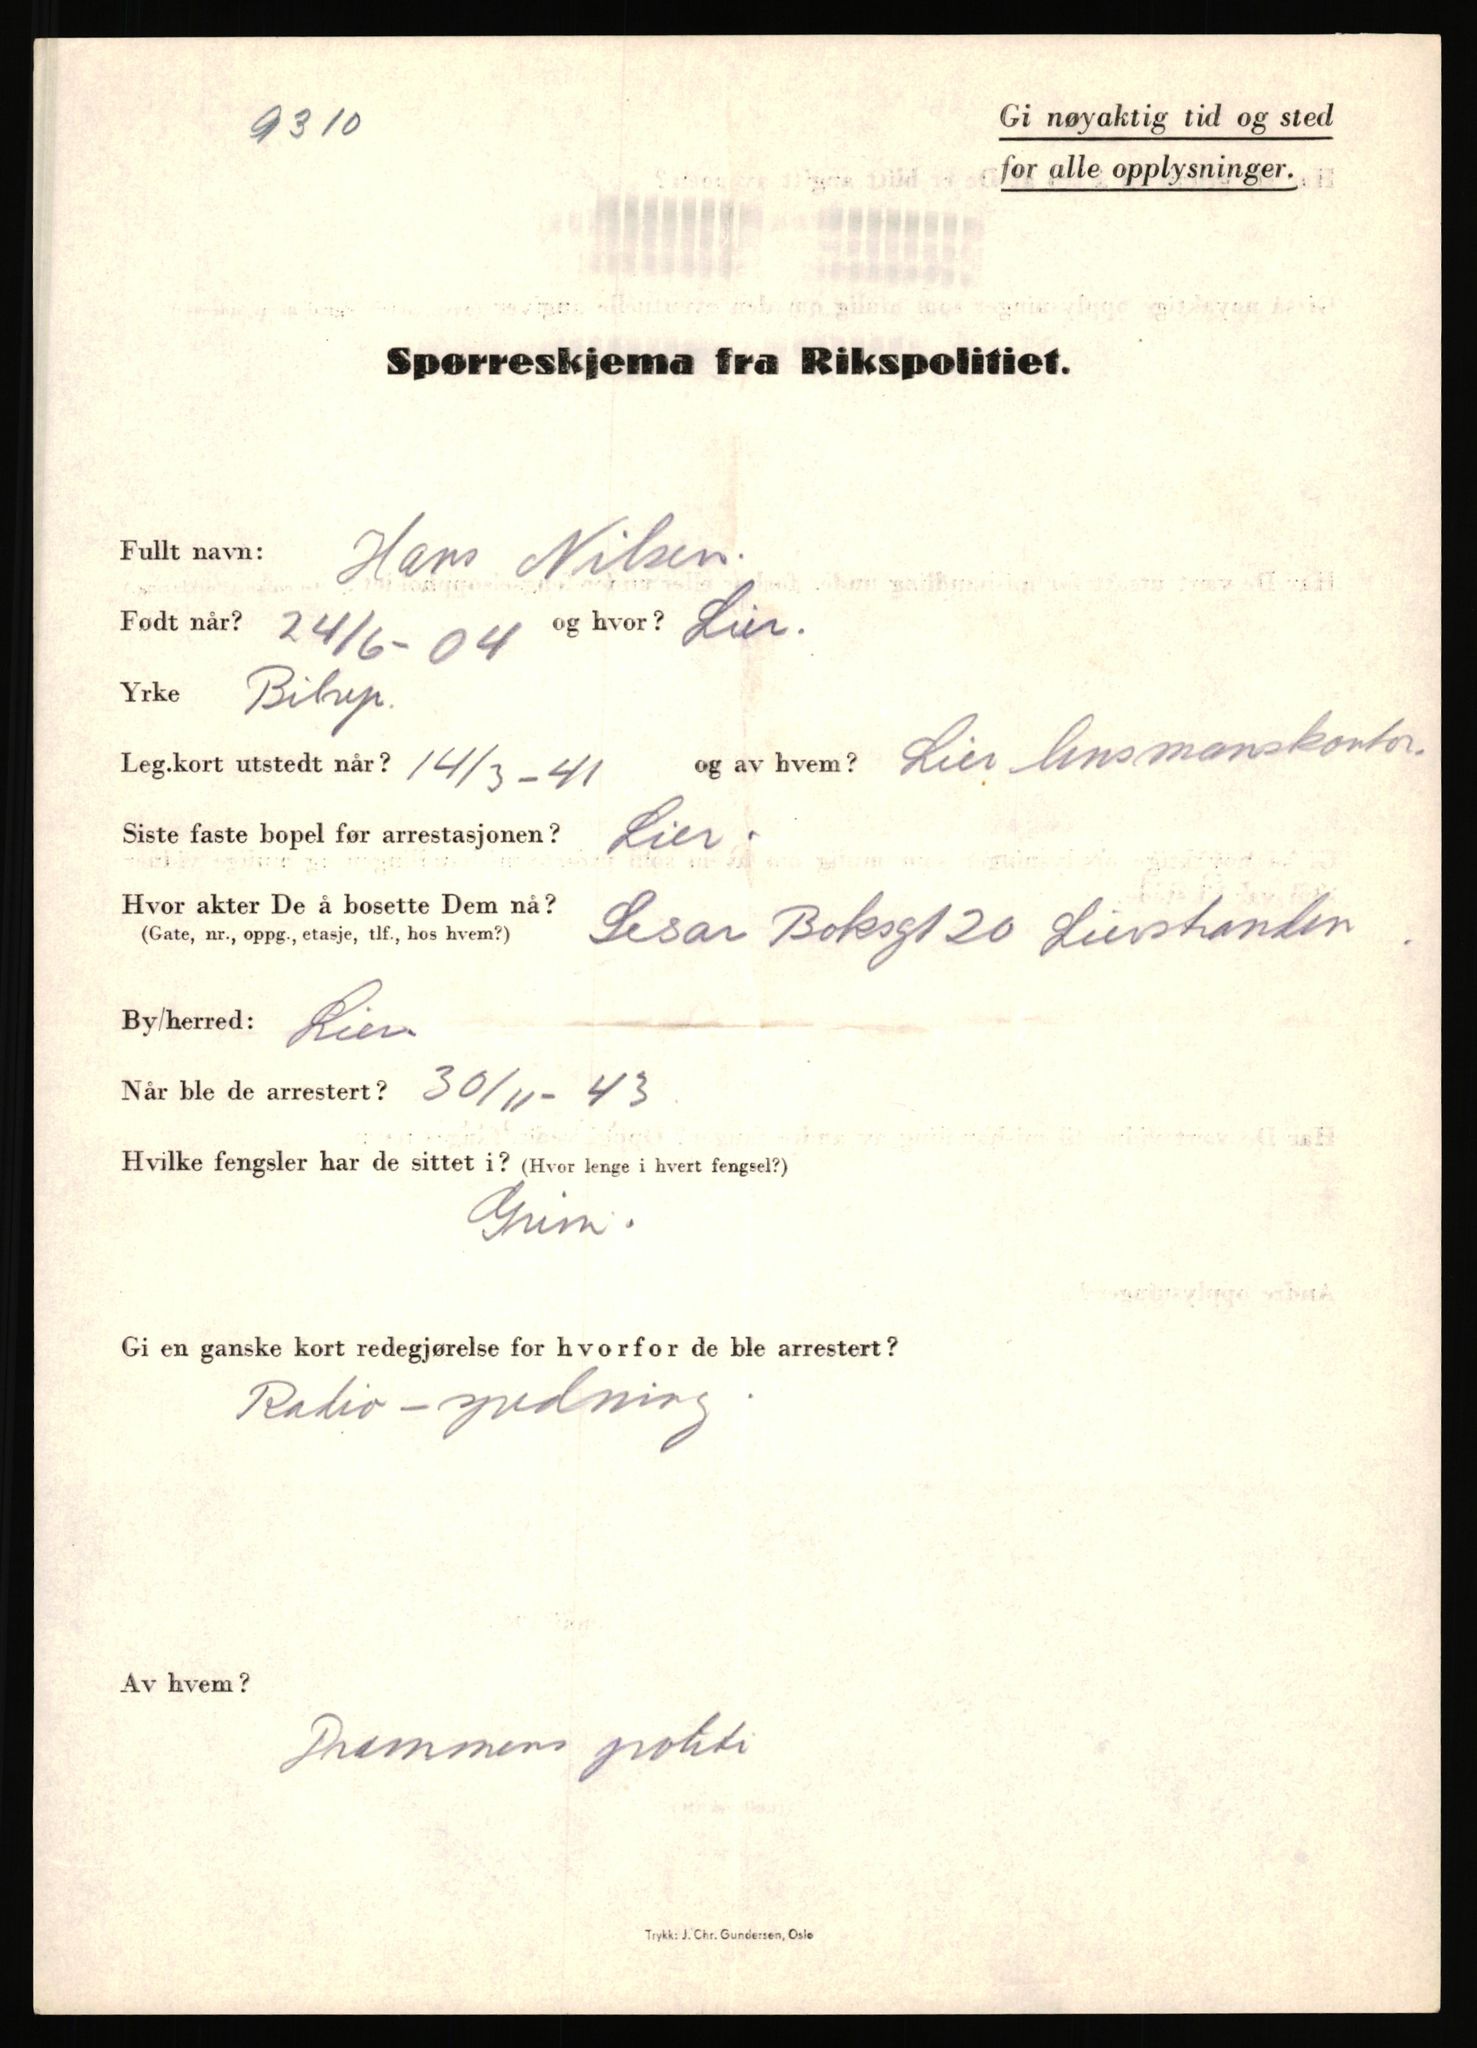 9310
Gi nøyaktig tid og sted
for alle opplysninger.
Spørreskjema fra Rikspolitiet.
Fullt navn: Hans Nilsen.
Født når? 24/6-04 og hvor? Lier.
Yrke Bilrep.
Leg.kort utstedt når? 14/3-41 og av hvem? Lier lensmanskontor.
Siste faste bopel før arrestasjonen? Lier.
Hvor akter De å bosette Dem nå? Sesar Boksgt 20 Lierstranden.
(Gate, nr., oppg., etasje, tlf., hos hvem?)
By/herred: Lier
Når ble de arrestert? 30/11-43
Hvilke fengsler har de sittet i? (Hvor lenge i hvert fengsel?)
Grini.
Gi en ganske kort redegjørelse for hvorfor de ble arrestert?
Radio-spredning.
Av hvem?
Drammens politi
Trykk: J. Chr. Gundersen, Oslo